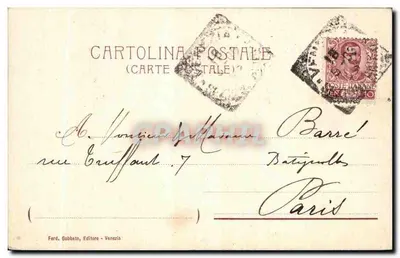 CARTOLINA POSTALE
(CARTE POSTALE)
10
A. Monsieur & Madame Barré
rue Truffaut. 7 Batignolles
Paris
Ferd. Bobbein, Editore - Venezia